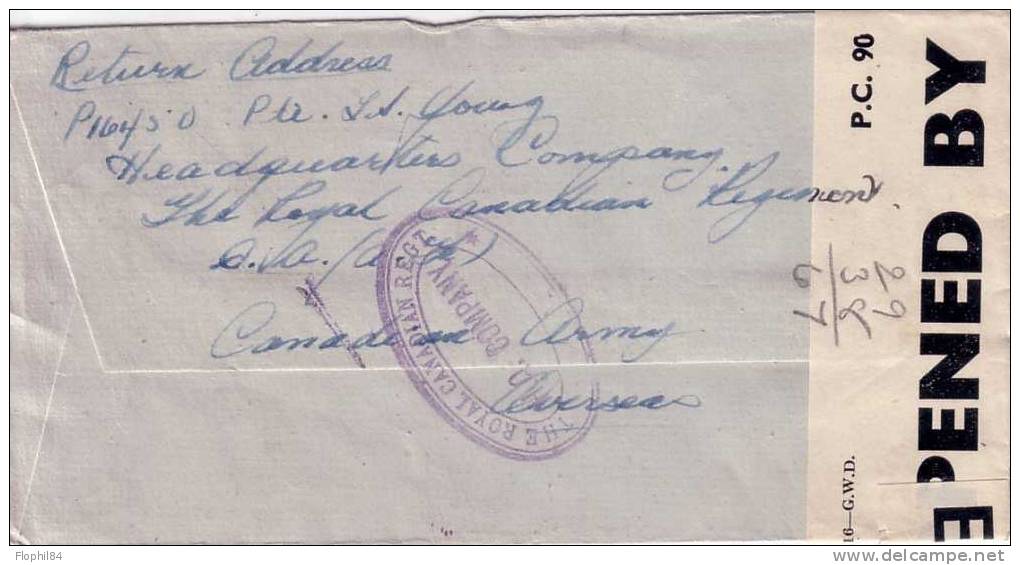 Return Address
P16450 Pte. L.A. Young
Headquarters Company
The Royal Canadian Regiment
C.A. (A.F.)
Canadian Army
Overseas
THE ROYAL CANADIAN REGT.
COMPANY
P.C. 90
PENED BY
16—G.W.D.
Flophil84